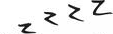 z z z z